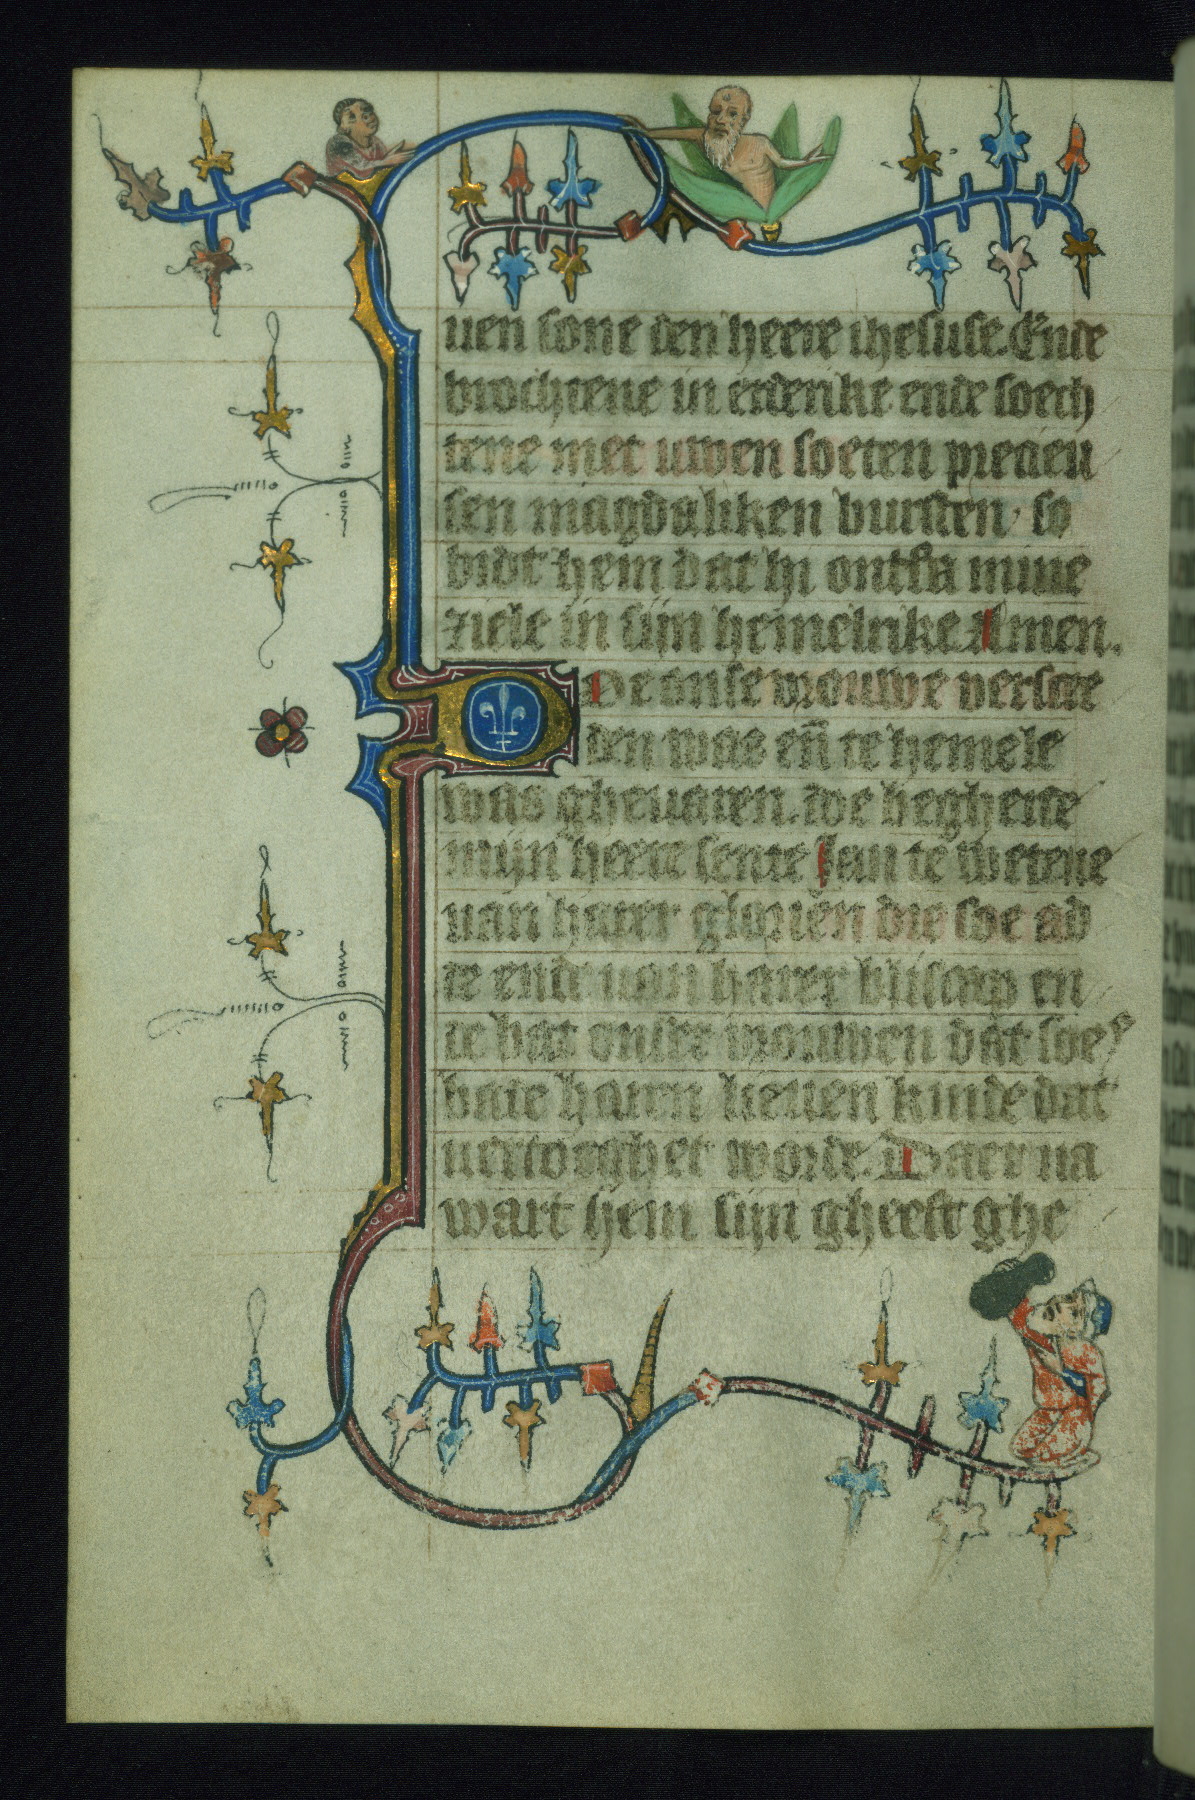 uen sone den heere ihesuse. Ende
brochtene in erderike ende soech
tene met uwen soeten precieu
sen magdaliken bursten so
bidt hem dat hi ontfa mine
ziele in sijn hemelrike Amen.
Doe onse vrouwe versce
den was eñ te hemele
was gheuaren. doe begherde
mijn heere sente Jan te wetene
uan harer glorien die soe ad
te ende uan harer bliscap en
te bat onser vrouwen dat soe
bate haren lieuen kinde dat
uertoeghet worde. Daer na
wart hem sijn gheest ghe